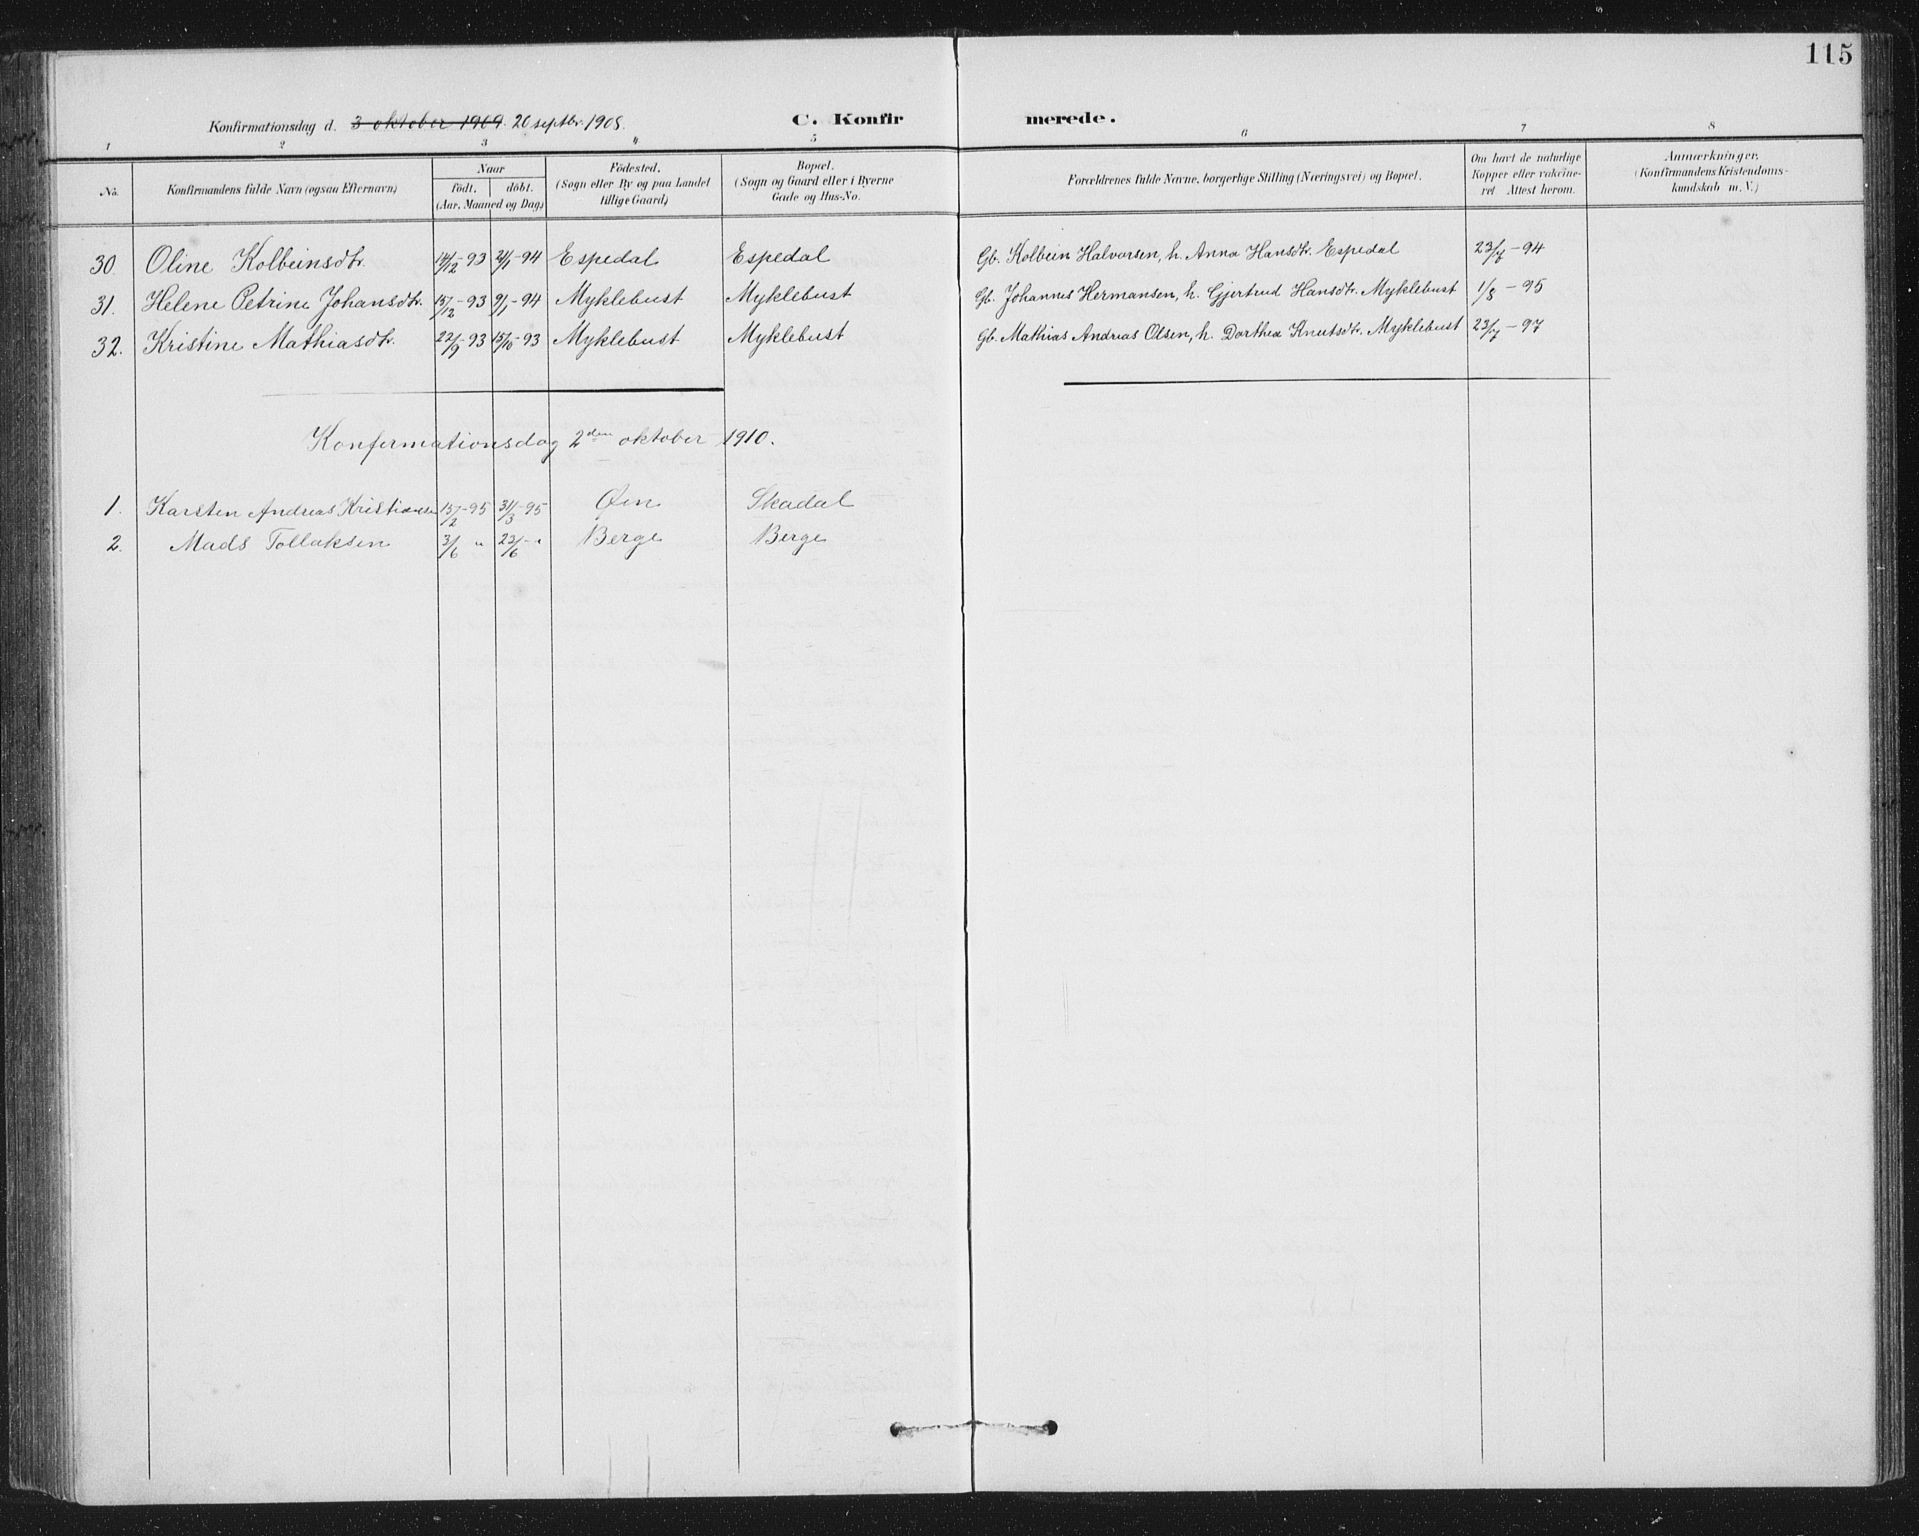 115
Konfirmationsdag d. 3 oktober 1909. 20 septbr. 1908.
C. Konfirmerede.
1 2 3 4 5 6 7 8
No.
Konfirmandens fulde Navn (ogsaa Efternavn)
Naar
födt. döbt.
(Aar, Maaned og Dag)
Födested.
(Sogn eller By og paa Landet
tillige Gaard)
Bopæl.
(Sogn og Gaard eller i Byerne
Gade og Hus-No.
Forældrenes fulde Navne, borgerlige Stilling (Næringsvei) og Bopæl.
Om havt de naturlige
Kopper eller vakcine-
ret Attest herom.
Anmærkninger.
(Konfirmandens Kristendoms-
kundskab m. V.)
30. Oline Kolbeinsdtr. 14/12-93 21/1-94 Espedal Espedal Gb. Kolbein Halvorsen, h. Anna Hansdtr. Espedal 23/7-94
31. Helene Petrine Johansdtr. 15/12-93 9/1-94 Myklebust Myklebust Gb. Johannes Hermansen, h. Gjertrud Hansdtr. Myklebust 1/8-95
32. Kristine Mathiasdtr. 22/9-93 15/10-93 Myklebust Myklebust Gb. Mathias Andreas Olsen, h. Dorthea Knutsdtr. Myklebust 23/7-97
Konfermationsdag 2den oktober 1910.
1. Karsten Andreas Kristiansen 15/2-95 31/3-95 Øen Skadal
2. Mads Tollaksen 3/6 " 23/6-" Berge Berge